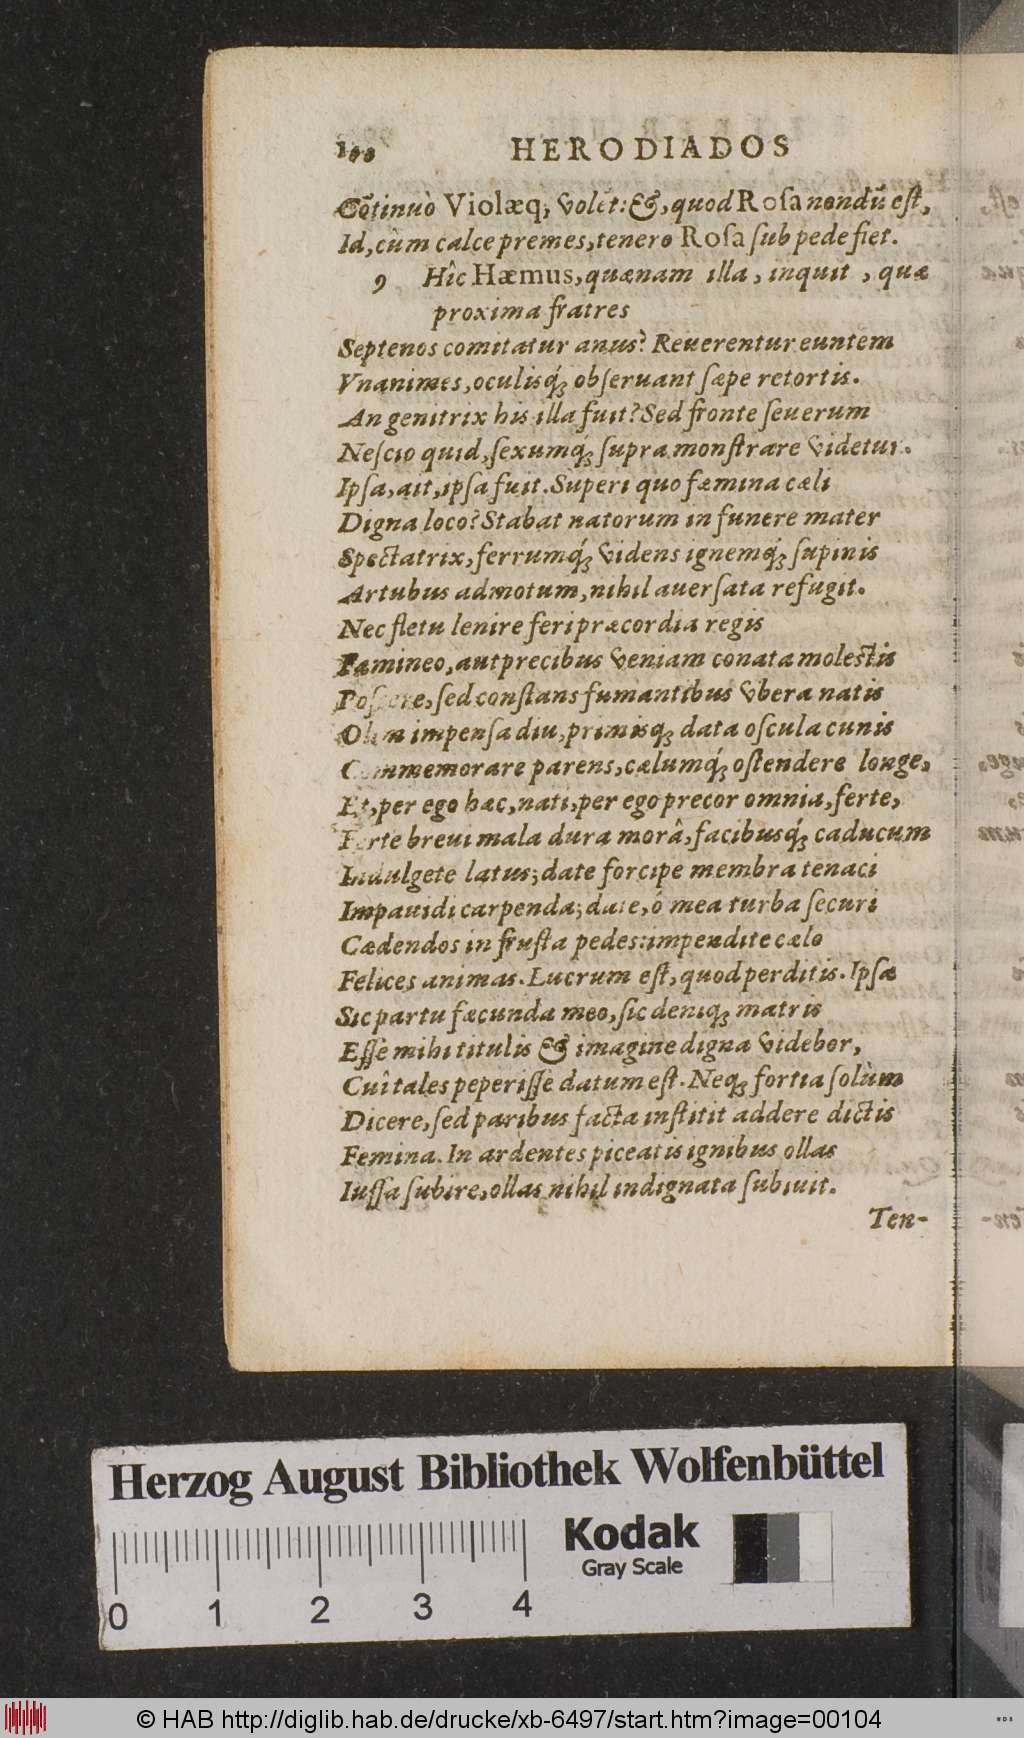 100 HERODIADOS
Cõtinuò Violæq; volet: &, quod Rosa nondū est,
Id, cùm calce premes, tenero Rosa sub pede fiet.
9 Hîc Hæmus, quænam illa, inquit, quæ
proxima fratres
Septenos comitatur anus? Reuerentur euntem
Vnanimes, oculisq́; obseruant sæpe retortis.
An genitrix his illa fuit? Sed fronte seuerum
Nescio quid, sexumq́; supra monstrare videtur.
Ipsa, ait, ipsa fuit. Superi quo fæmina cæli
Digna loco? Stabat natorum in funere mater
Spectatrix, ferrumq́; videns ignemq́; supinis
Artubus admotum, nihil auersata refugit.
Nec fletu lenire feri præcordia regis
Famineo, aut precibus veniam conata molestis
Poscere, sed constans fumantibus vbera natis
Olim impensa diu, primisq; data oscula cunis
Commemorare parens, cælumq́; ostendere longe,
Et, per ego hæc, nati, per ego precor omnia, ferte,
Ferte breui mala dura morâ, facibusq́; caducum
Indulgete latus; date forcipe membra tenaci
Impauidi carpenda; date, ó mea turba securi
Cædendos in frusta pedes: impendite cælo
Felices animas. Lucrum est, quod perditis. Ipsæ
Sic partu fæcunda meo, sic deniq; matris
Esse mihi titulis & imagine digna videbor,
Cui tales peperisse datum est. Neq; fortia solùm
Dicere, sed paribus facta institit addere dictis
Femina. In ardentes piceatis ignibus ollas
Iussa subire, ollas nihil indignata subiuit.
Ten-
Herzog August Bibliothek Wolfenbüttel
Kodak
Gray Scale
0 1 2 3 4
© HAB http://diglib.hab.de/drucke/xb-6497/start.htm?image=00104